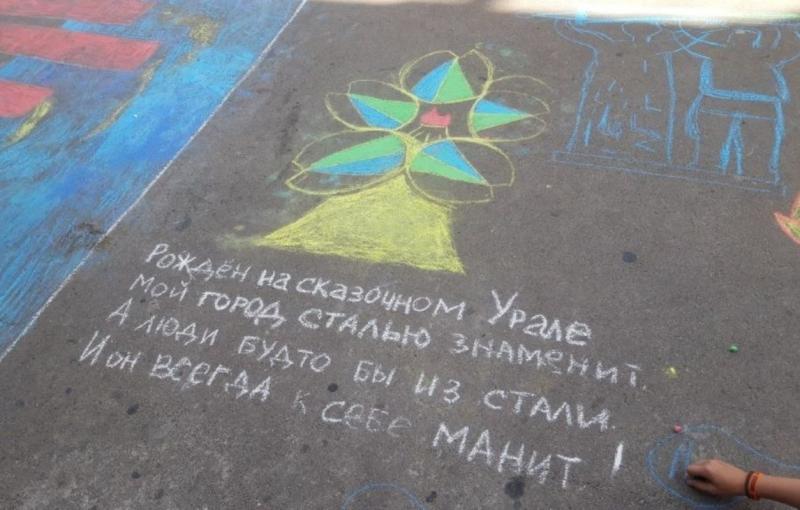 Рождён на сказочном Урале
мой город сталью знаменит.
А люди будто бы из стали.
И он всегда к себе манит!